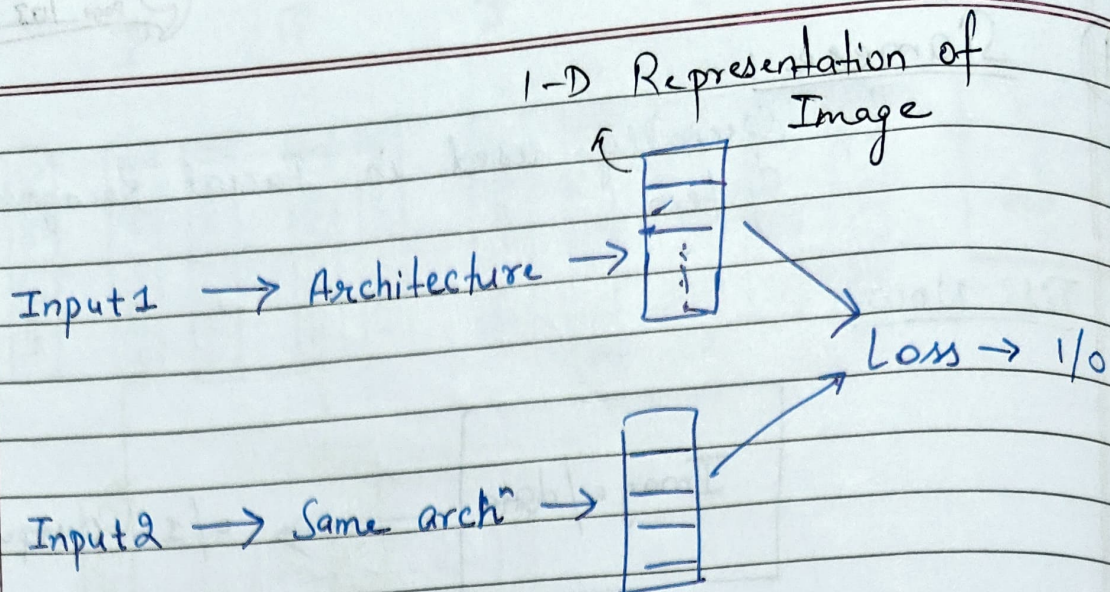 1-D Representation of
Image
Input1 → Architecture →
Loss → 1/0
Input2 → Same archⁿ →